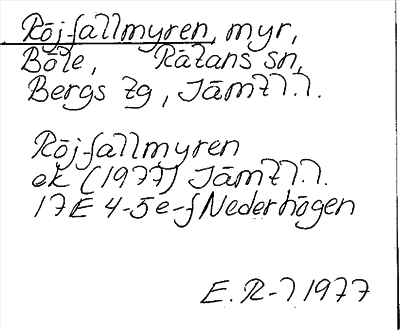 Röjfallmyren, myr,
Böle, Rätans sn,
Bergs tg, Jämtl.l.
Röjfallmyren
ek (1977) Jämtl.l.
17E 4-5e-f Nederhögen
E. R-l 1977